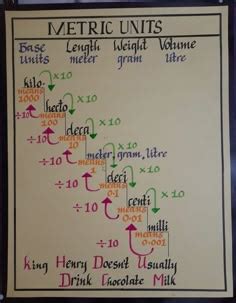 METRIC UNITS
Base Length Weight Volume
Units meter gram litre
kilo
means
1000
×10
÷10
hecto
means
100
×10
÷10
deca
means
10
×10
÷10
meter, gram, litre
means
1
×10
÷10
deci
means
0.1
×10
÷10
centi
means
0.01
×10
÷10
milli
means
0.001
King Henry Doesn't Usually
Drink Chocolate Milk